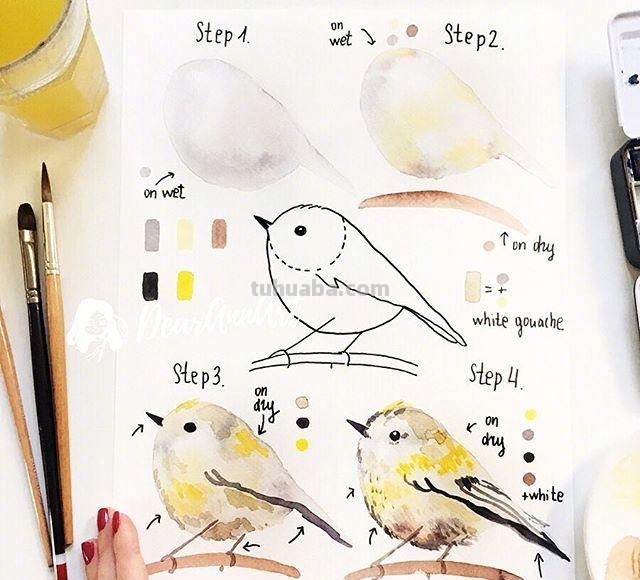 Step 1.
on
wet
Step 2.
on wet
on dry
= +
white gouache
tuhuaba.com
DearAnnArt
Step 3.
on
dry
Step 4.
on
dry
+white